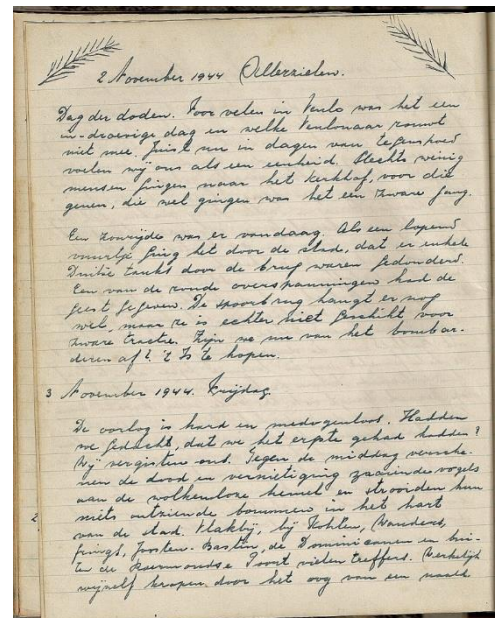 2 November 1944 Allerzielen.
Dag der doden. Voor velen in Venlo was het een
in-droevige dag en welke Venlonaar rouwt
niet mee. Juist nu in dagen van tegenspoed
voelen wij ons als een eenheid. Slechts weinig
mensen gingen naar het kerkhof, voor die
genen, die wel gingen was het een zware gang.
Een was er vandaag. Als een lopend
vuurtje ging het door de stad, dat er enkele
Duitse tanks door de brug waren gedonderd.
Een van de ronde overspanningen had de
geest gegeven. De spoorbrug hangt er nog
wel, maar ze is echter niet geschikt voor
zware tractie. Zijn we nu van het bombar-
deren af? 't Is te hopen.
3 November 1944. Vrijdag
De oorlog is hard en medogenloos. Hadden
we gedacht, dat we het ergste gehad hadden?
Wij vergisten ons. Tegen de middag versche-
nen de dood en vernietiging zaaiende vogels
aan de wolkenloze hemel en strooiden hun
niets ontziende bommen in het hart
van de stad. Vlakbij, bij Wouders,
Joosten. Bastin, de Dominicanen en bui-
ten de Roermondse Poort vielen treffers. Werkelijk
wijzelf kropen door het oog van een naald
2